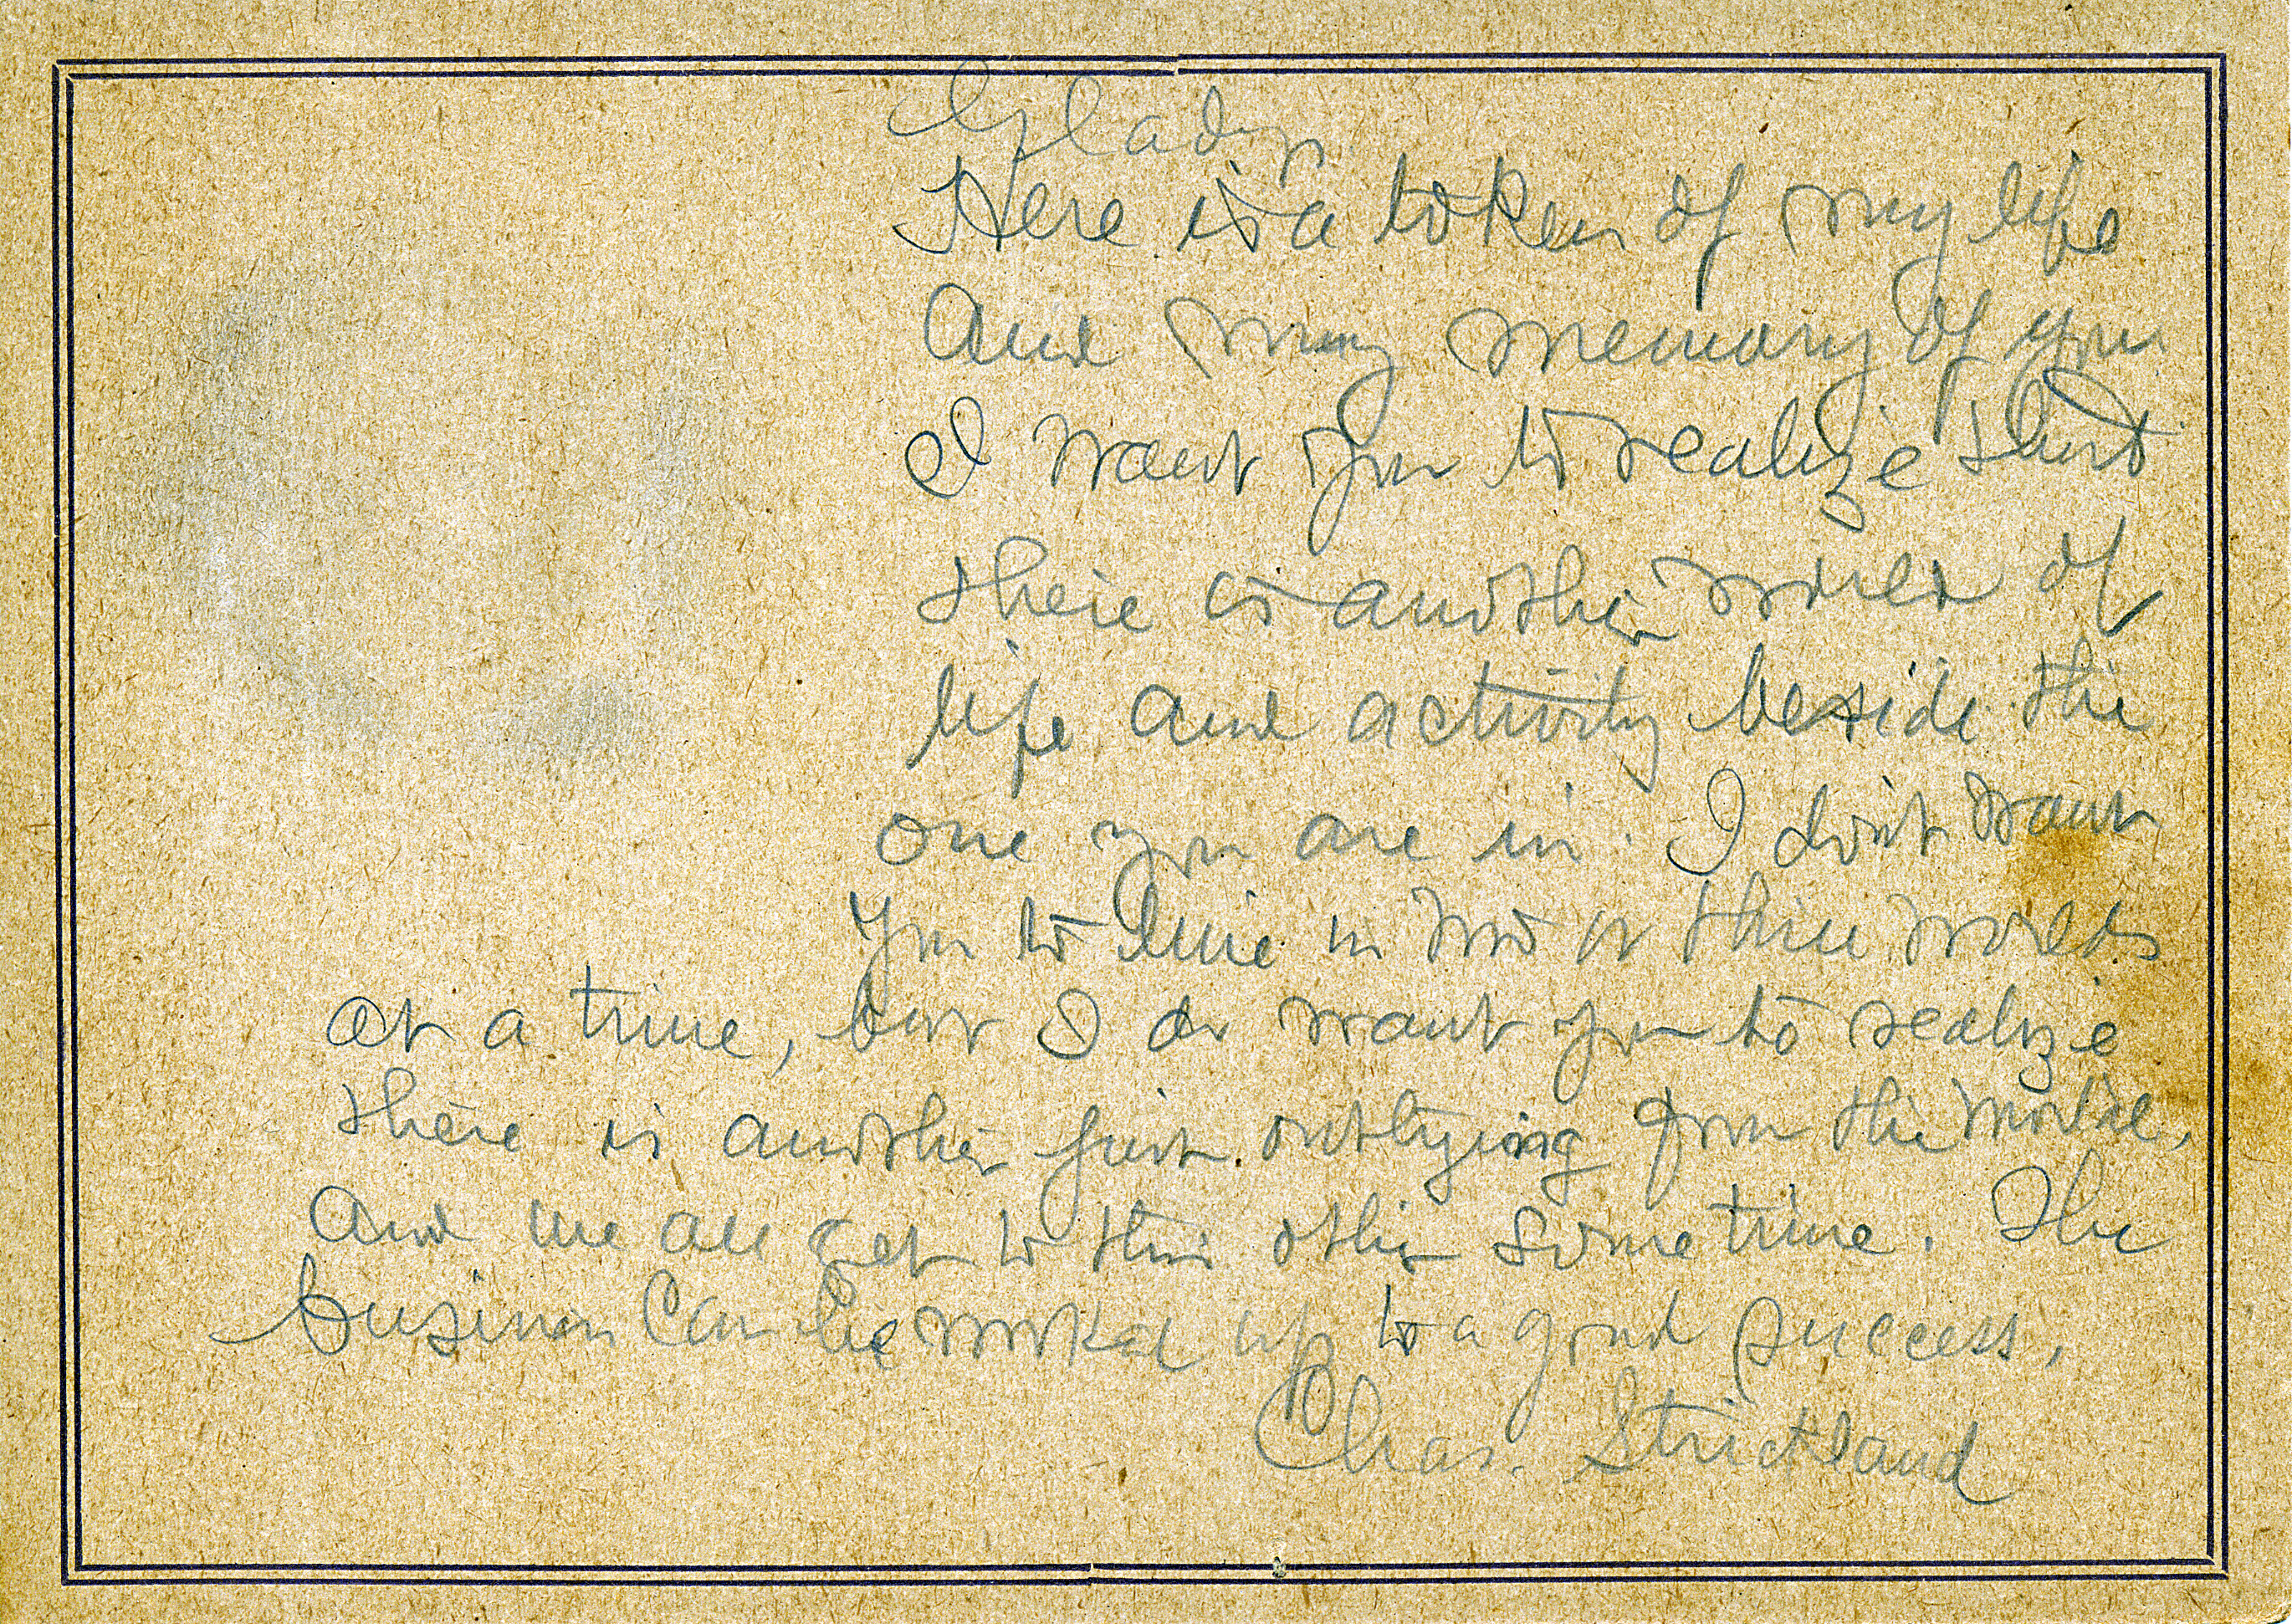 Gladys
Here is a token of my life
And my memory of you
I want you to realize that
there is another world of
life and activity beside the
one you are in. I don't want
you to live in two or three worlds
at a time, but I do want you to realize
there is another just outlying from the mortal,
And we all get to this other some time. The
business can be worked up to a good success,
Chas. Strickland